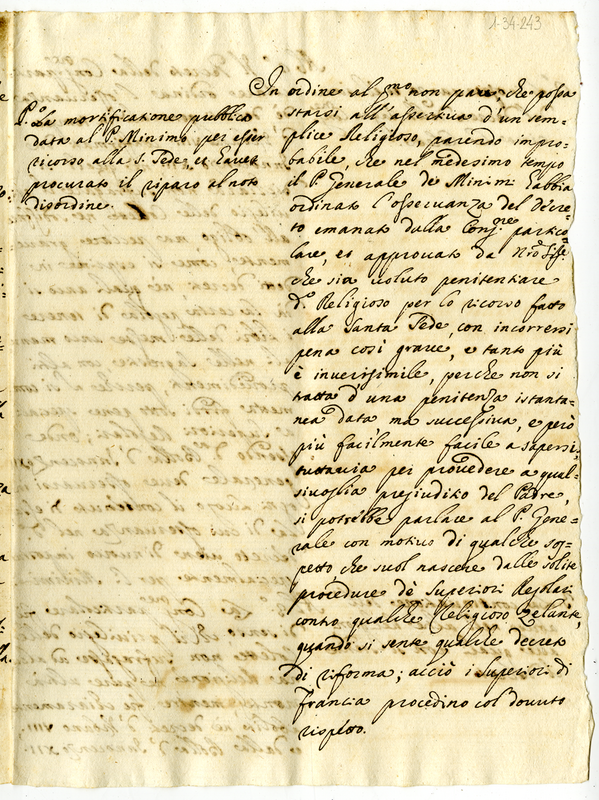 1-34-243
P.o La mortificatione publica
data al P. Minimo per esser
ricorso alla S. Sede, et haver
procurato il riparo al noto
disordine.
In ordine al p.mo non pare, che possa
starsi all'assertiva d'un sem-
plice Religioso, parendo impro-
babile, che nel medesimo tempo
il P. Generale de Minimi habbia
ordinato l'osservanza del decre-
to emanato dalla Cong.ne partico-
lare, et approvato da N.ro Sig.re
che sia voluto penitentiare
d.o Religioso per lo ricorso fatto
alla Santa Sede, con incorrersi
pena così grave, e tanto più
è inverisimile, perche non si
tratta d'una penitenza istanta-
nea data, ma successiva, e però
più facilmente facile a sapersi,
tuttavia per provedere a qual-
sivoglia pregiuditio del Padre,
si potrebbe parlare al P. Gene-
rale con motivo di qualche sos-
petto che suol nascere dalle solite
procedure de Superiori Regolari
contro qualche Religioso zelante,
quando si sente qualche decreto
di riforma; acciò i Superiori di
Francia procedino col dovuto
rispetto.